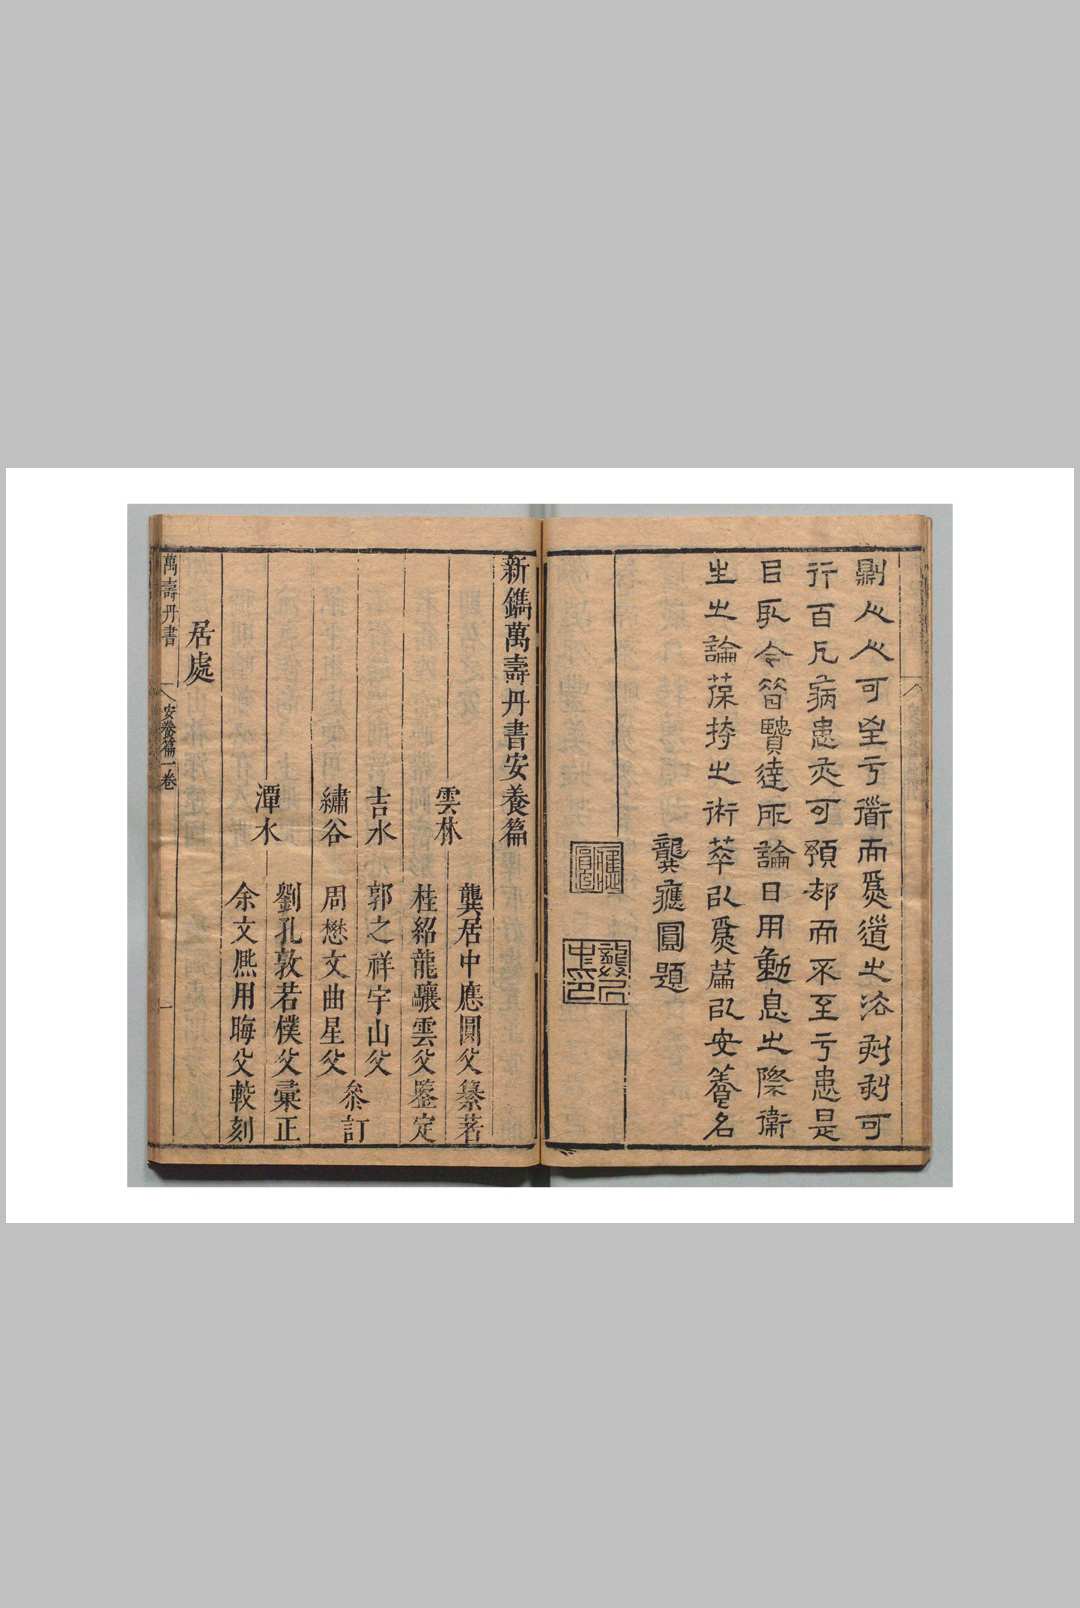 則人人可至亏衟而爲道之法刻刻可
行百凡病患亦可預却而不至亏患是
目取今昔賢達所論日用動息之際衛
生之論葆持之術萃㕥爲篇㕥安養名
龔應圓題
應圓
龔居中印
新鐫萬壽丹書安養篇
雲林
龔居中應圓父纂著
桂紹龍驤雲父鑒定
吉水
郭之祥宇山父
繡谷
周懋文曲星父
參訂
潭水
劉孔敦若樸父彙正
余文熈用晦父較刻
居處
萬壽丹書
安養篇一卷
一